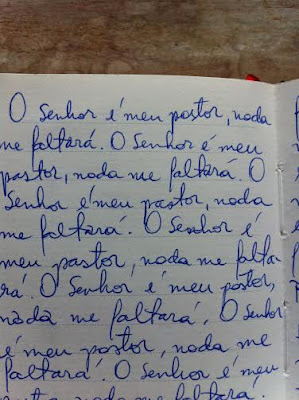 O Senhor é meu pastor, nada
me faltará. O Senhor é meu
pastor, nada me faltará. O
Senhor é meu pastor, nada
me faltará. O Senhor é
meu pastor, nada me falta-
rá. O Senhor é meu pastor,
nada me faltará. O Senhor
é meu pastor, nada me
faltará. O Senhor é meu
nada me faltará.